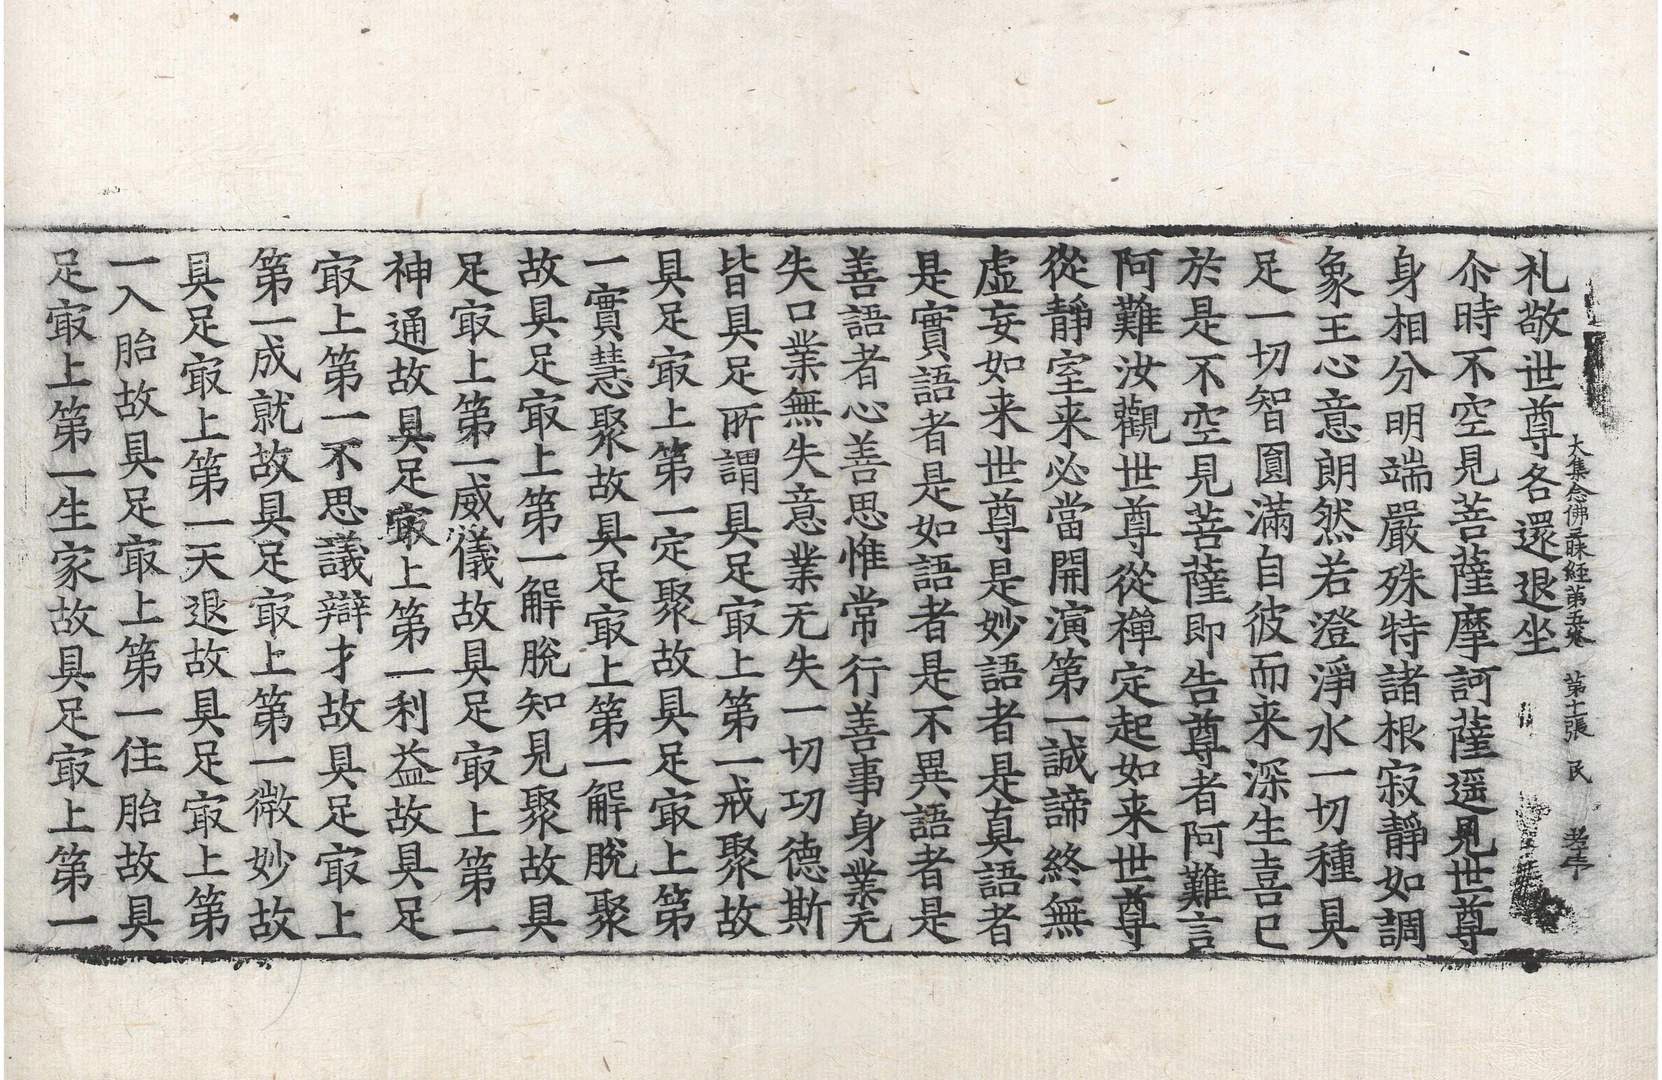 大集念佛三昧経第五卷 第十張 民
礼敬世尊各還退坐
尒時不空見菩薩摩訶薩遥見世尊
身相分明端嚴殊特諸根寂靜如調
象王心意朗然若澄淨水一切種具
足一切智圓滿自彼而来深生喜已
於是不空見菩薩即告尊者阿難言
阿難汝觀世尊從禅定起如来世尊
從靜室来必當開演第一誠諦終無
虛妄如来世尊是妙語者是真語者
是實語者是如語者是不異語者是
善語者心善思惟常行善事身業无
失口業無失意業无失一切功德斯
皆具足所謂具足㝡上第一戒聚故
具足㝡上第一定聚故具足㝡上第
一實慧聚故具足㝡上第一解脫聚
故具足㝡上第一解脫知見聚故具
足㝡上第一威儀故具足㝡上第一
神通故具足㝡上第一利益故具足
㝡上第一不思議辯才故具足㝡上
第一成就故具足㝡上第一微妙故
具足㝡上第一天退故具足㝡上第
一入胎故具足㝡上第一住胎故具
足㝡上第一生家故具足㝡上第一